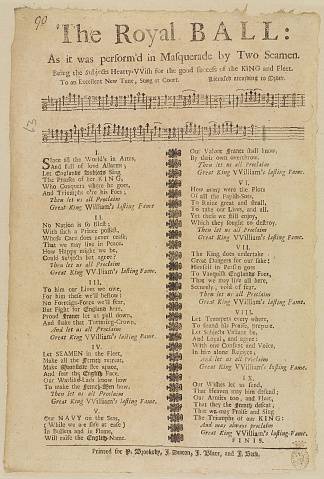 90
The Royal BALL:
As it was perform'd in Masquerade by Two Seamen.
Being the Subjects Hearty-VVish for the good success of the KING and Fleet.
To an Excellent New Tune, Sung at Court. Licensed according to Order.
I.
Since all the World's in Arms,
And full of loud Alarms;
Let Englands Subjects Sing
The Praise of her KING,
Who Conquers where he goes,
And Triumphs o're his Foes;
Then let us all Proclaim
Great King VVilliam's lasting Fame.
II.
No Nation is so Blest;
With such a Prince possest,
Whose Care does never cease,
That we may live in Peace.
How Happy might we be,
Could Subjects but agree?
Then let us all Proclaim
Great King VVilliam's lasting Fame.
III.
To him our Lives we owe,
For him those we'll bestow;
No Foreign-Force we'll fear,
But Fight for England here,
Proud France let us pull down,
And shake that Tottering-Crown,
And let us all Proclaim
Great King VVilliam's lasting Fame.
IV.
Let SEAMEN in the Fleet,
Make all the French retreat,
Make Monsieur fly apace,
And fear the English Face.
Our Warlike-Lads know how
To make the French-Men bow.
Then let us all Proclaim
Great King VVilliam's lasting Fame.
V.
Our NAVY on the Seas,
(While we are safe at ease)
In Bullets and in Flame,
Will raise the English-Name.
Our Valour France shall know,
By their own overthrow.
Then let us all Proclaim
Great King VVilliam's lasting Fame.
VI.
How many were the Plots
Of all the Popish-Sots,
To Ruine great and small,
To take our Lives, and all.
Yet these we still enjoy,
Which they sought to destroy.
Then let us all Proclaim
Great King VVilliam's lasting Fame.
VII.
The King does undertake
Great Dangers for our sake;
Himself in Person goes
To Vanquish Englands Foes,
That we may live all here,
Securely, void of fear.
Then let us all Proclaim
Great King VVilliam's lasting Fame.
VIII.
Let Trumpets every where,
To sound his Praise, prepare.
Let Subjects Valiant be,
And Loyal, and agree:
With one Consent and Voice,
In him alone Rejoyce;
And let us all Proclaim
Great King VVilliam's lasting Fame.
IX.
Our Wishes let us send,
That Heaven may him defend;
Our Armies too, and Fleet,
That they the French defeat;
That we may Praise and Sing
The Triumphs of our KING:
And may always proclaim
Great King VVilliam's lasting Fame.
FINIS.
Printed for P. Brooksby, J. Deacon, J. Blare, and J. Back.